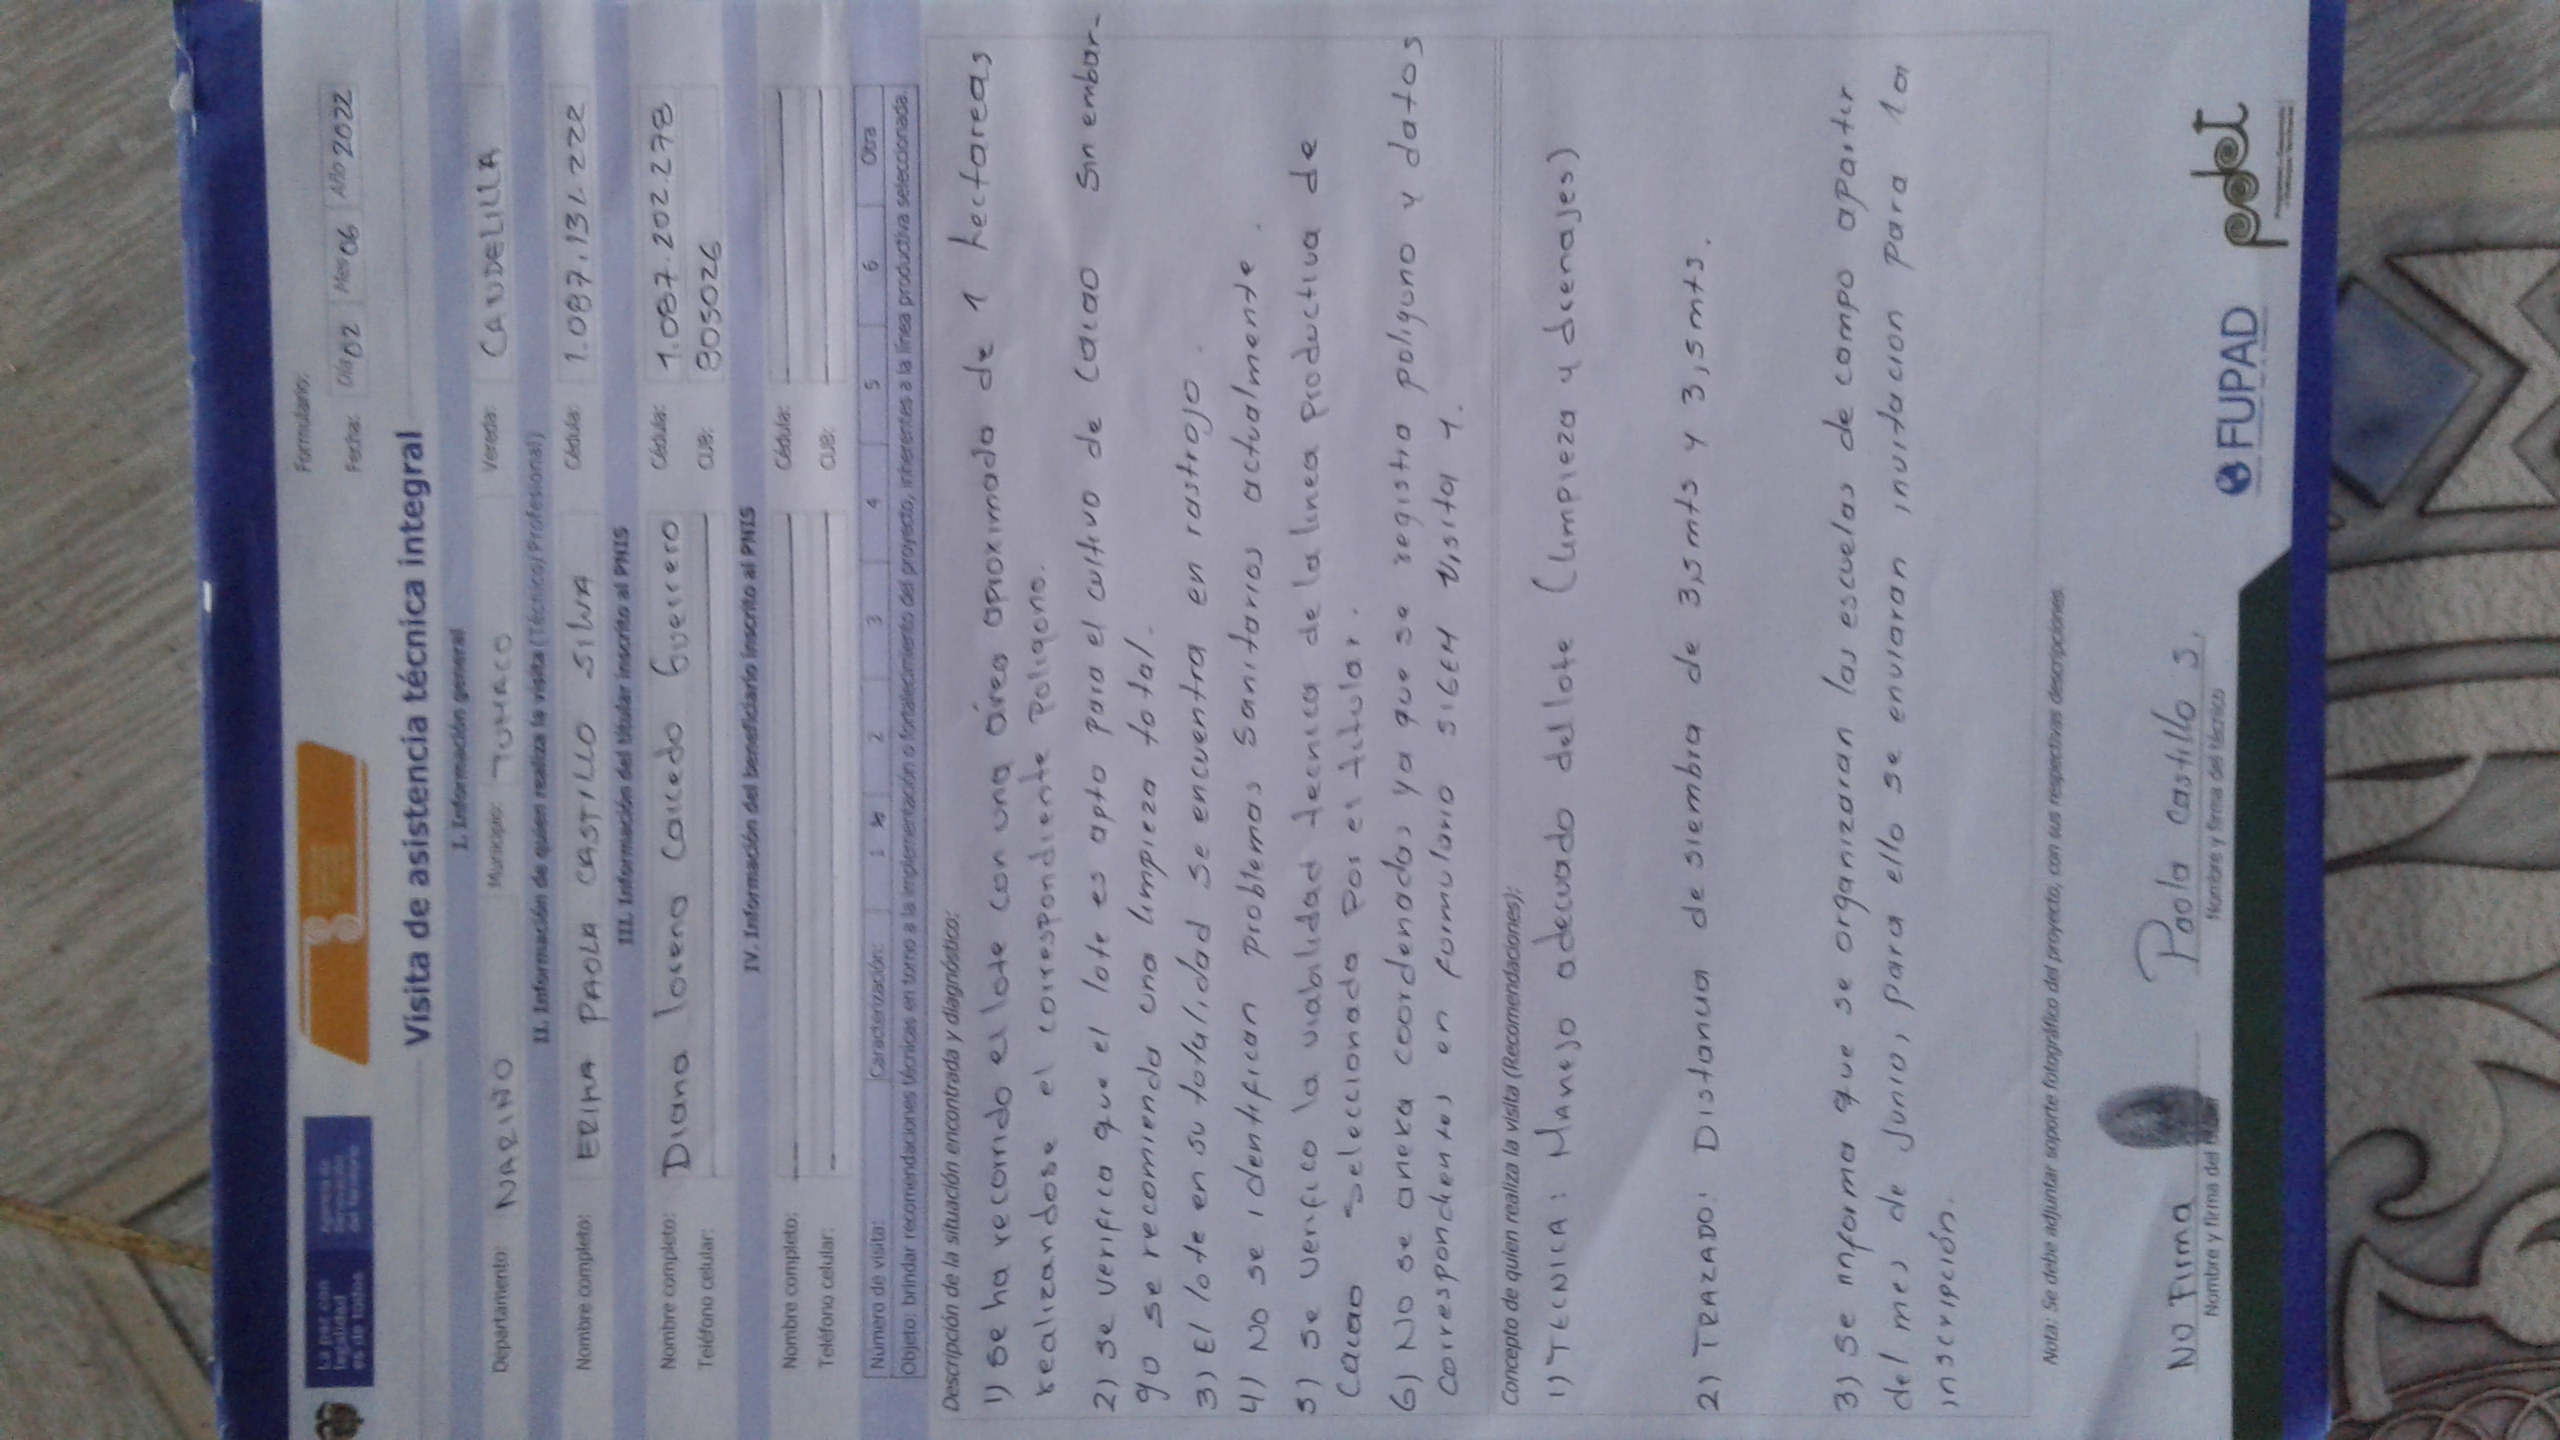 La paz con
legalidad
es de todos
Agencia de
Renovación
del Territorio
Formulario:
Fecha: Día 02 Mes 06 Año 2022
Visita de asistencia técnica integral
I. Información general
Departamento: NARIÑO Municipio: TUMACO Vereda: CANDELILLA
II. Información de quien realiza la visita (Técnico/Profesional)
Nombre completo: ERIKA PAOLA CASTILLO SILVA Cédula: 1.087.131.222
III. Información del titular inscrito al PNIS
Nombre completo: Diana lorena Caicedo Guerrero Cédula: 1.087.202.278
Teléfono celular: CUB: 805026
IV. Información del beneficiario inscrito al PNIS
Nombre completo: Cédula:
Teléfono celular: CUB:
Número de visita: Caracterización: 1 x 2 3 4 5 6 Otra
Objeto: brindar recomendaciones técnicas en torno a la implementación o fortalecimiento del proyecto, inherentes a la línea productiva seleccionada.
Descripción de la situación encontrada y diagnóstico:
1) se ha recorrido el lote con una área aproximada de 1 hectareas
realizandose el correspondiente Poligono.
2) se verifica que el lote es apto para el cultivo de Cacao Sin embar-
go se recomienda una limpieza total.
3) El lote en su totalidad se encuentra en rastrojo.
4) No se identifican problemas sanitarios actualmente.
5) se verifico la viabilidad tecnica de la linea Productiva de
Cacao seleccionada Por el titular.
6) No se anexa coordenadas ya que se registra poligono y datos
correspondientes en formulario SIGEM Visita 1.
Concepto de quien realiza la visita (Recomendaciones):
1) TECNICA: Manejo adecuado del lote (limpieza y drenajes)
2) TRAZADO: Distancia de siembra de 3,5mts y 3,5mts.
3) Se informa que se organizaran las escuelas de campo apartir
del mes de Junio, para ello se enviaran invitacion para la
inscripción.
Nota: Se debe adjuntar soporte fotográfico del proyecto, con sus respectivas descripciones.
NO Firma Paola Castillo S.
Nombre y firma del Nombre y firma del técnico
FUPAD pdet